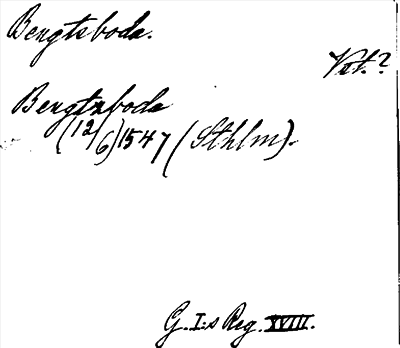 Bengtsboda.
Vst.?
Bengtzbode
(12/6) 1547 (Sthlm).
G. I:s Reg. XVIII.